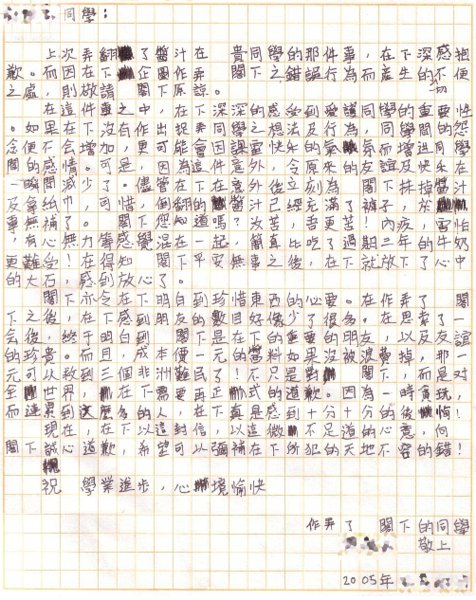 同學：
上次弄翻了醬汁在 貴同學的那件事，在下深感抱
歉。而因在下企圖作弄 閣下之錯誤行為而產生的不便
之處，則敬請 閣下原諒。
在這件事之中，在下深深的感受到愛護同學的重要性
。如果在下沒有作出捉弄同學之想法及行為，同學間的怨
念便不會增加，更可能會因課室快樂的氣氛而增進同
閣的感情。可是，因為這件意外，令原來的友誼及快樂在
一瞬間減少了。儘管在下在意外後立刻為 閣下抹掉醬汁
及拿紙巾，可惜，倒翻的醬汁已經充滿了褲子，於
事無補了。 閣下您知道嗎？汝苦，吾更苦！內疚，害怕
，有心無力等感覺混在一起，簡直比吃了過期三年的牛奶
更難受！在得知 閣下平安無事之後，在下就放下了心中
的大石，感到放心了。
閣下亦令在下明白到珍惜東西的心要。在作弄了 閣
下之後，在下感到朋友的數目好像少了很多。在思索了一
會後，終于明白到 閣下是在下的重要的朋友，以及友誼
的珍貴。而且，成本便一元的醬料如果沒被浪費掉，那一
元可以救到三個非洲難民了！不只是對 閣下，而是對
至世界，在下需要再正式的道歉。因為一時貪玩，
而連累到這麼多的人，在下真是感到十分十分的後悔！
現在，在下以這封信，以這微不足道的心意，向
閣下誠心道歉，希望可以彌補在下所犯的天地不容的錯！
祝 學業進步，心境愉快
作弄了 閣下的同學
敬上
2005年